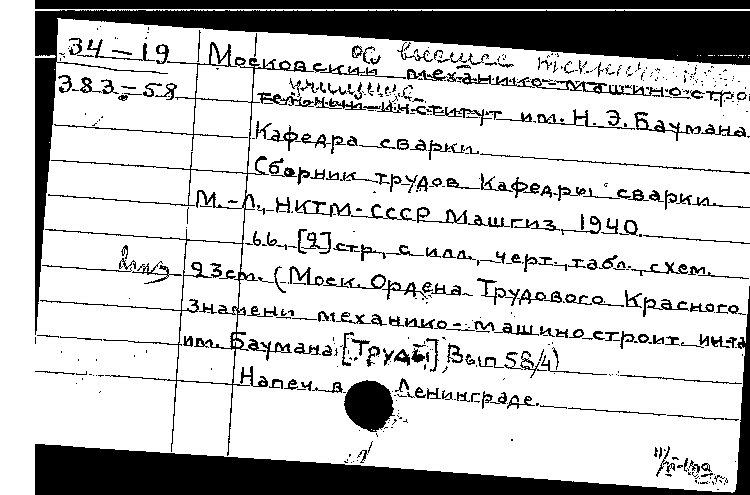 34-19
383-58
ое высшее техническое
Московский механико-машинострои
училище
тельный институт им. Н. Э. Баумана.
Кафедра сварки.
Сборник трудов Кафедры сварки.
М.-Л., НКТМ-СССР Машгиз, 1940.
66, [2] стр, с илл., черт., табл., схем.
23 cm. (Моск. Ордена Трудового Красного
Знамени механико-машиностроит. инта
им. Баумана [Труды] Вып 58/4)
Напеч. в Ленинграде.